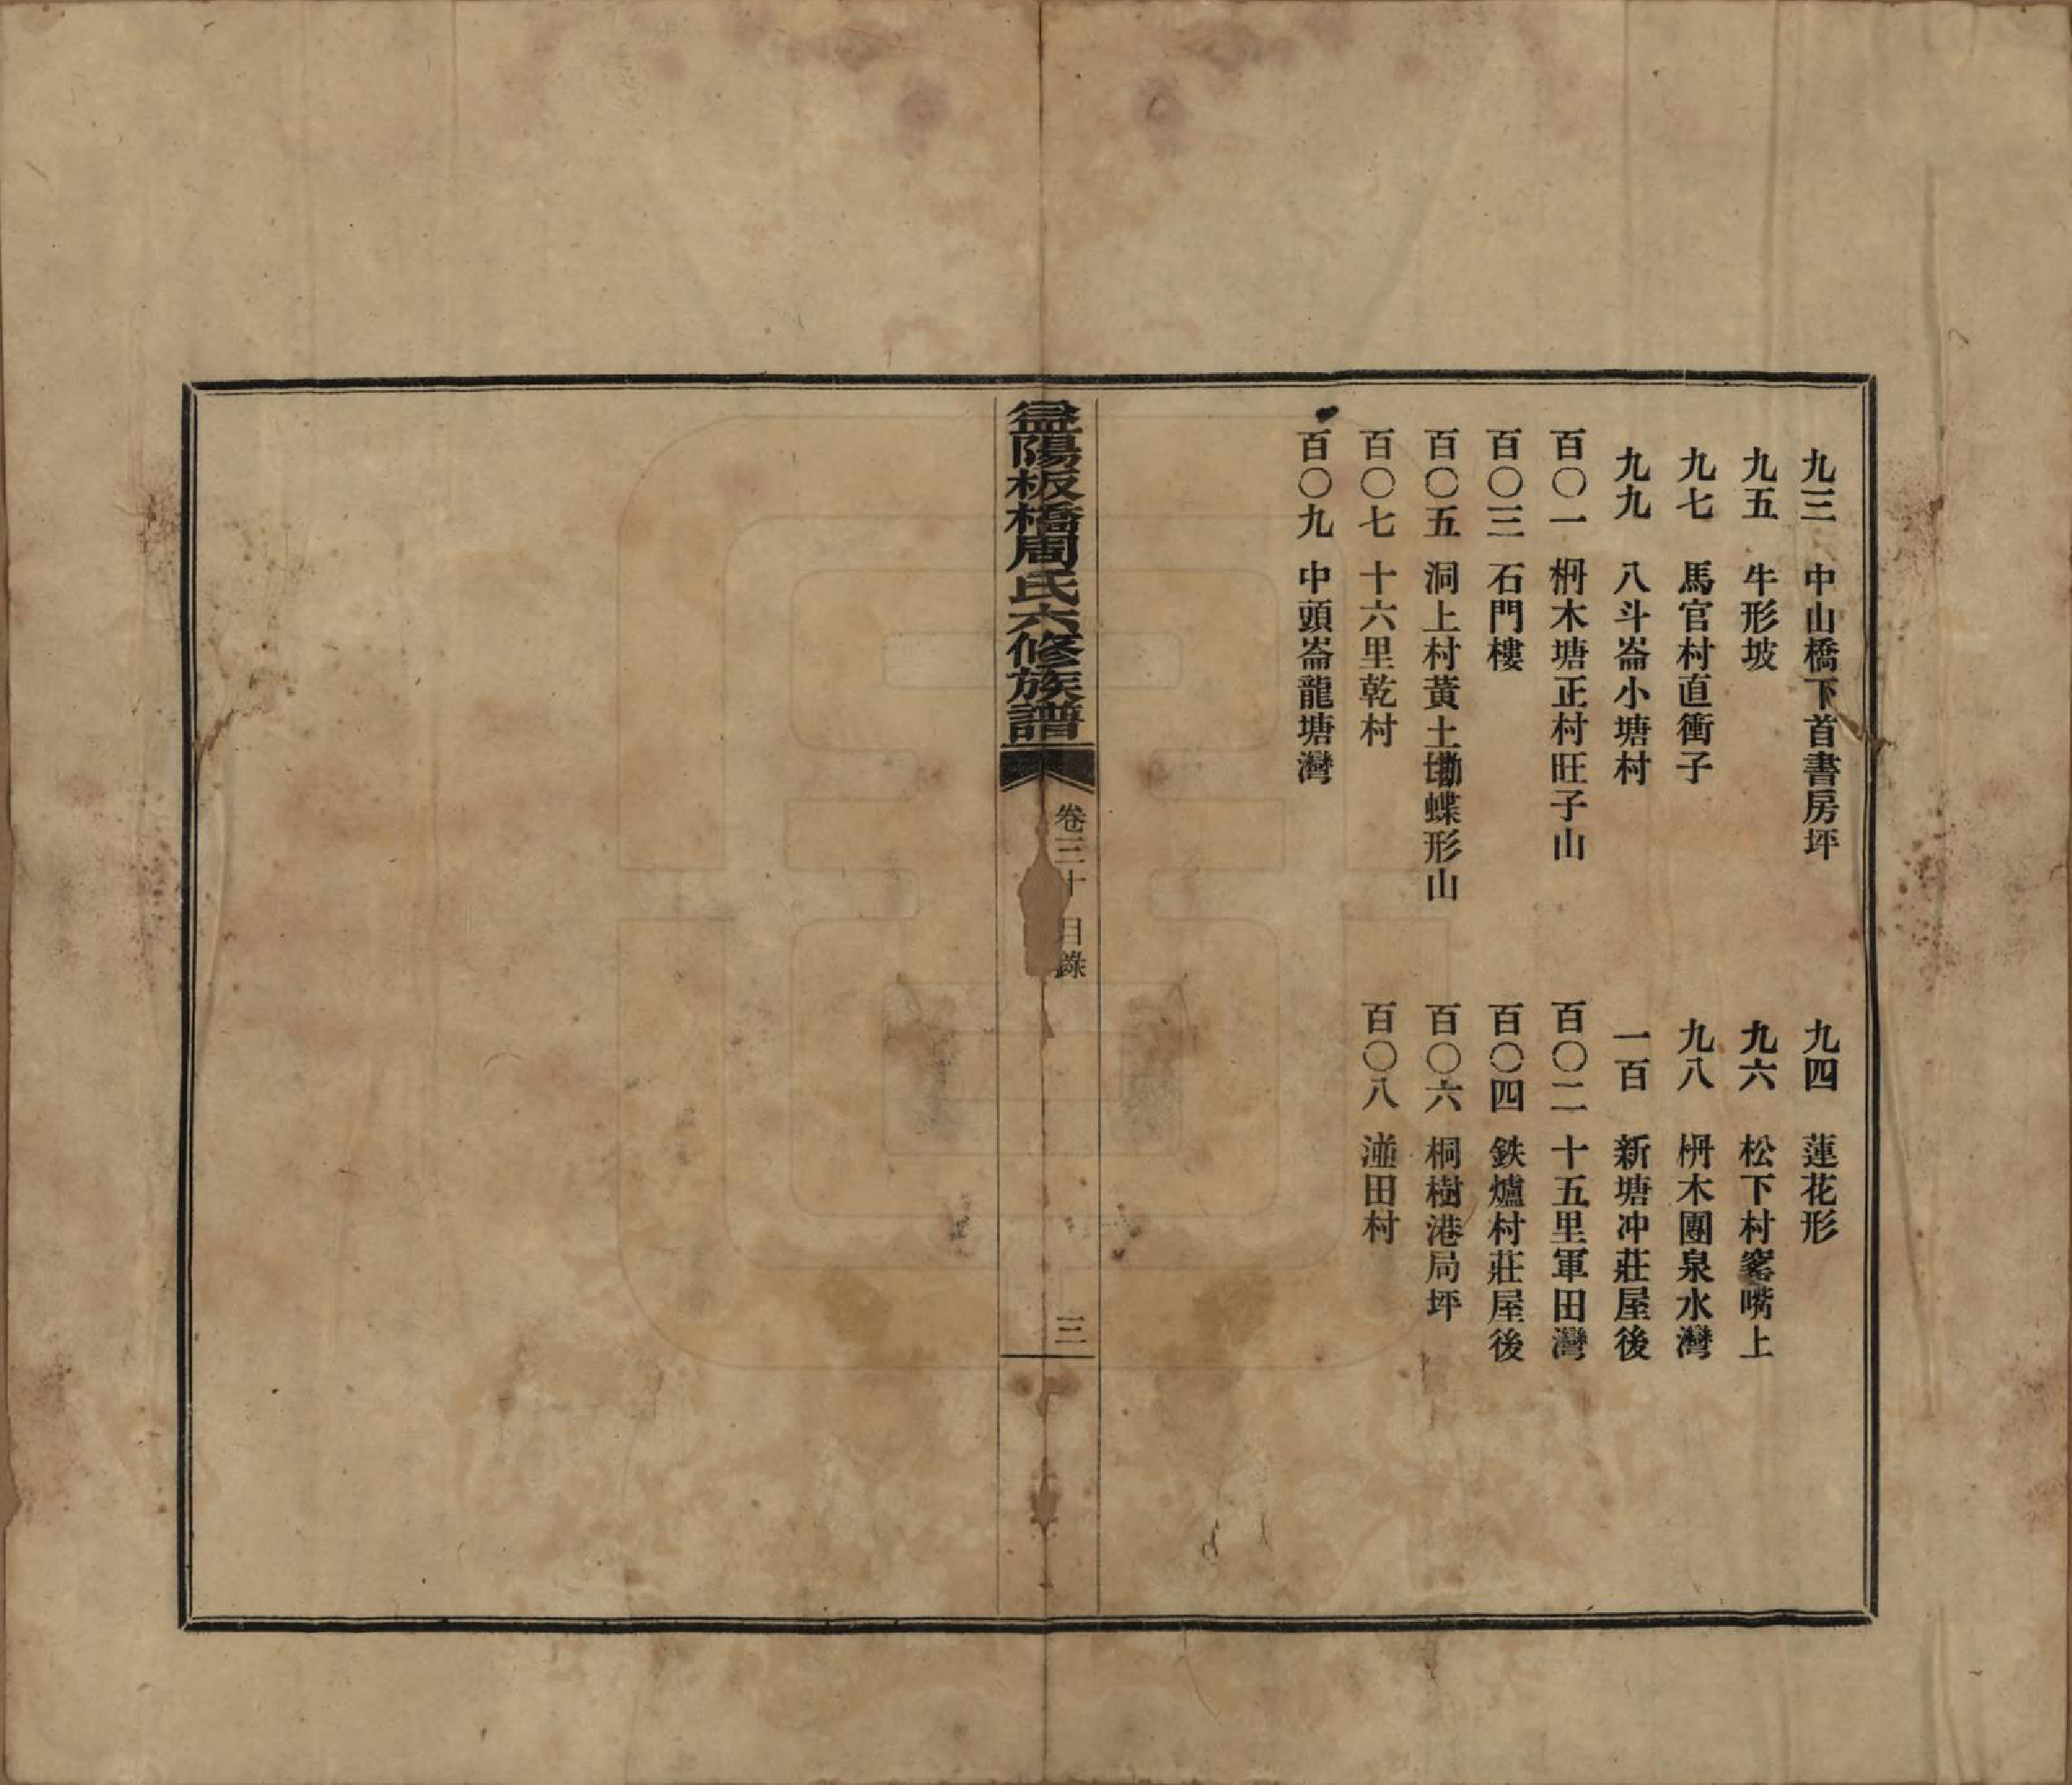 九三 中山橋下首書房坪
九四 蓮花形
九五 牛形坡
九六 松下村窰嘴上
九七 馬官村直衝子
九八 枬木團泉水灣
九九 八斗崙小塘村
一百 新塘冲莊屋後
百〇一 枬木塘正村旺子山
百〇二 十五里軍田灣
百〇三 石門樓
百〇四 鉄爐村莊屋後
百〇五 洞上村黃土蝶形山
百〇六 桐樹港局坪
百〇七 十六里乾村
百〇八 湴田村
百〇九 中頭崙龍塘灣
益陽板橋周氏六修族譜
卷三十 目錄
三